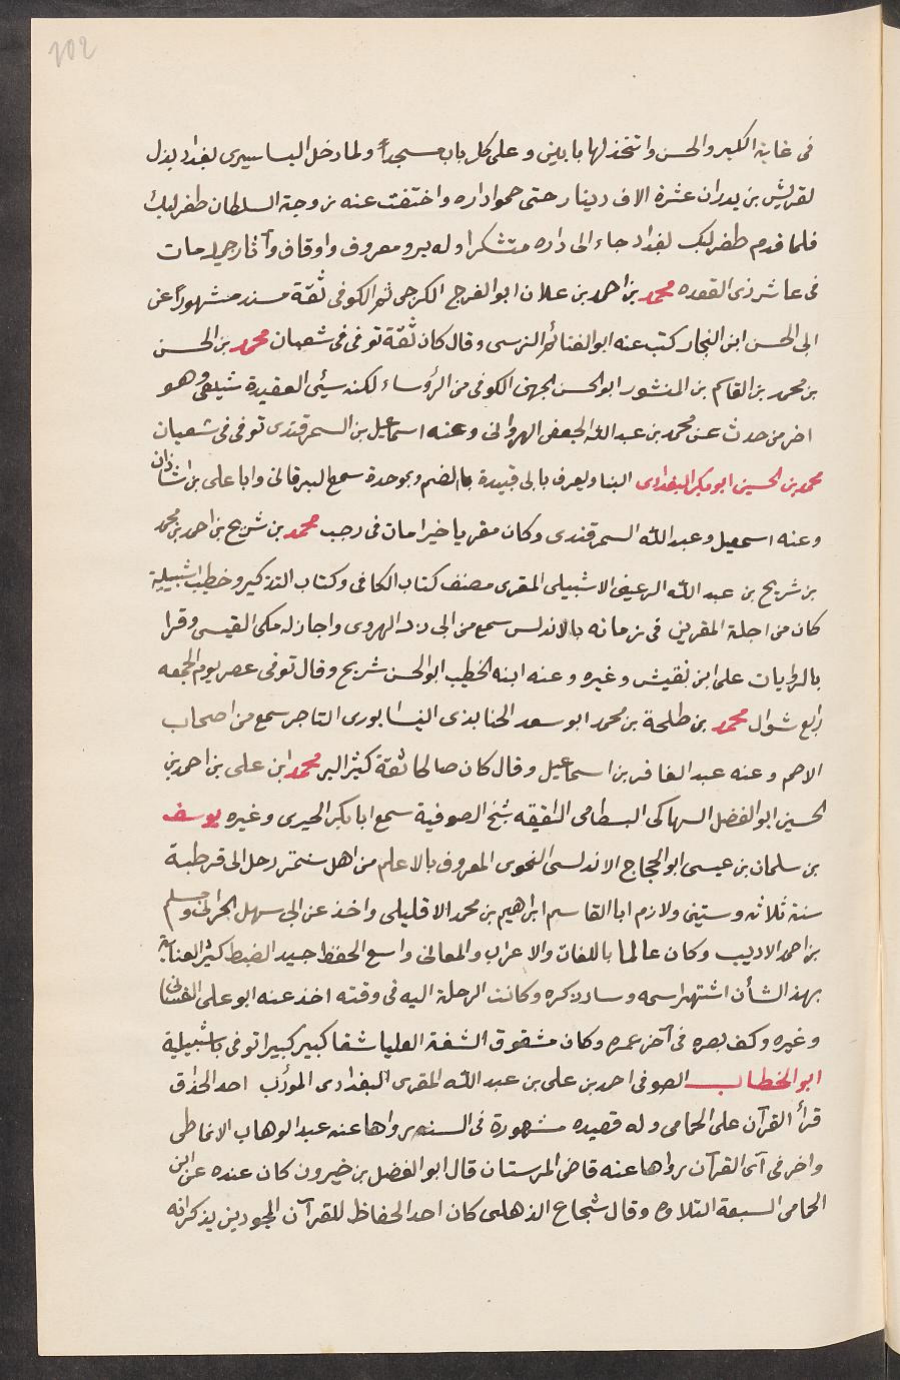 202
فى غاية الكبر والحسن واتخذ لها بابين وعلى كل باب مسجدا ولما دخل البساسيرى بغداد بذل
لقريش بن بدران عشرة الاف دينار حتى حموا داره واختفت عنه زوجة السلطان طغرلبك
فلما قدم طغرلبك بغداد جاء الى داره متشكرا وله بر ومعروف واوقاف وآثار جميلة مات
فى عاشر ذى القعده محمد بن احمد بن علان ابو الفرج الكرجى ثم الكوفى ثقة مسند مشهورا عن
ابى الحسن ابن النجار كتب عنه ابو الغنائم النرسى وقال كان ثقة توفى فى شعبان محمد بن الحسن
بن محمد بن القاسم بن المنشور ابو الحسن الجهنى الكوفى من الرؤساء لكنه سيئ العقيدة شيعى وهو
اخر من حدث عن محمد بن عبد الله الجعفى الهروانى وعنه اسماعيل بن السمرقندى توفى فى شعبان
محمد بن الحسين ابو بكر البغدادى البنا ويعرف بابى قبيدة بالضم وبموحدة سمع البرقانى وابا على بن شاذان
وعنه اسمعيل وعبد الله السمرقندى وكان مقريا خيرا مات فى رجب محمد بن شريح بن احمد بن محمد
بن شريح بن عبد الله الرعينى الاشبيلى المقرى مصنف كتاب الكافى وكتاب التذكير وخطيب اشبيلية
كان من اجلة المقرين فى زمانه بالاندلس سمع من ابى ذر الهروى واجاز له مكى القيسى وقرا
بالروايات على ابن نفيش وغيره وعنه ابنه الخطيب ابو الحسن شريح وقال توفى عصر يوم الجمعه
رابع شوال محمد بن طلحة بن محمد ابو سعد الجنابذى النيسابورى التاجر سمع من اصحاب
الاصم وعنه عبد الغافر بن اسماعيل وقال كان صالحا ثقة كثير البر محمد ابن على بن احمد بن
الحسين ابو الفضل السهلكى البسطامى الفقيه شيخ الصوفية سمع ابا بكر الحيرى وغيره يوسف
بن سلمان بن عيسى ابو الحجاج الاندلسى النحوى المعروف بالاعلم من اهل شنتمر رحل الى قرطبة
سنة ثلاث وستين ولازم ابا القاسم ابراهيم بن محمد الاقليلى واخذ عن ابى سهل الحرانى ومسلم
بن احمد الاديب وكان عالما باللغات والاعراب والمعانى واسع الحفظ جيد الضبط كثير العناية
بهذا الشأن اشتهر اسمه وساد ذكره وكانت الرحلة اليه فى وقته اخذ عنه ابو على الغسانى
وغيره وكف بصره فى آخر عمره وكان مشقوق الشفة العليا شقا كبير كبيرا توفى باشبيلية
ابو الخطاب الصوفى احمد بن على بن عبد الله المقرى البغدادى المؤدب احد الحذاق
قرأ القرآن على الحمامى وله قصيده مشهورة فى السنه رواها عنه عبد الوهاب الانماطى
واخر فى آى القرآن رواها عنه قاضى المرستان قال ابو الفضل بن خيرون كان عنده عن ابن
الحمامى السبعة التلاوه وقال شجاع الذهلى كان احد الحفاظ للقرآن المجودين يذكر انه